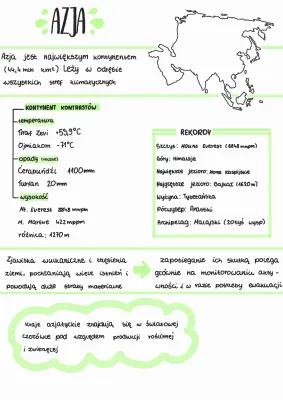 AZJA
Azja jest największym kontynentem
(44,4 mln km²) Leży w obrębie
wszystkich stref klimatycznych
KONTYNENT KONTRASTÓW
temperatura
Tirat Zevi +53,9°C
Ojmiakon -71°C
opady (roczne)
Czerapuńdżi 11000mm
Turfan 20mm
wysokość
Mt. Everest 8848 mnpm
M. Martwe 422 mppm
różnica: 9270m
REKORDY
Szczyt: Mount Everest (8848mnpm)
Góry: Himalaje
Największe jezioro: Morze Kaspijskie
Najgłębsze jezioro: Bajkał (1620m)
Wyżyna: Tybetańska
Półwysep: Arabski
Archipelag: Malajski (20tyś wysp)
Zjawiska wulkaniczne i trzęsienia
ziemi, pochłaniają wiele istnień i
powodują duże straty materialne
zapobieganie ich skutką polega
głównie na monitorowaniu akty-
wności i w razie potrzeby ewakuacji
kraje azjatyckie znajdują się w światowej
czołówce pod względem produkcji roślinnej
i zwierzęcej